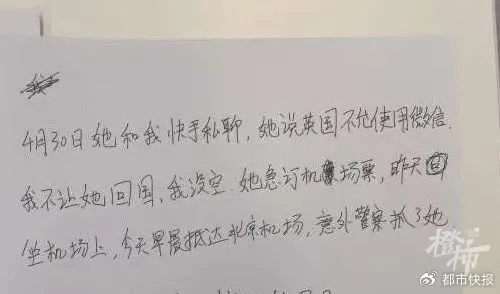 4月30日她和我快手私聊,她说英国不允使用微信.
我不让她回国,我没空.她急订机场票,昨天
坐机场上,今天早晨抵达北京机场,意外警察抓了她
橙柿
@都市快报